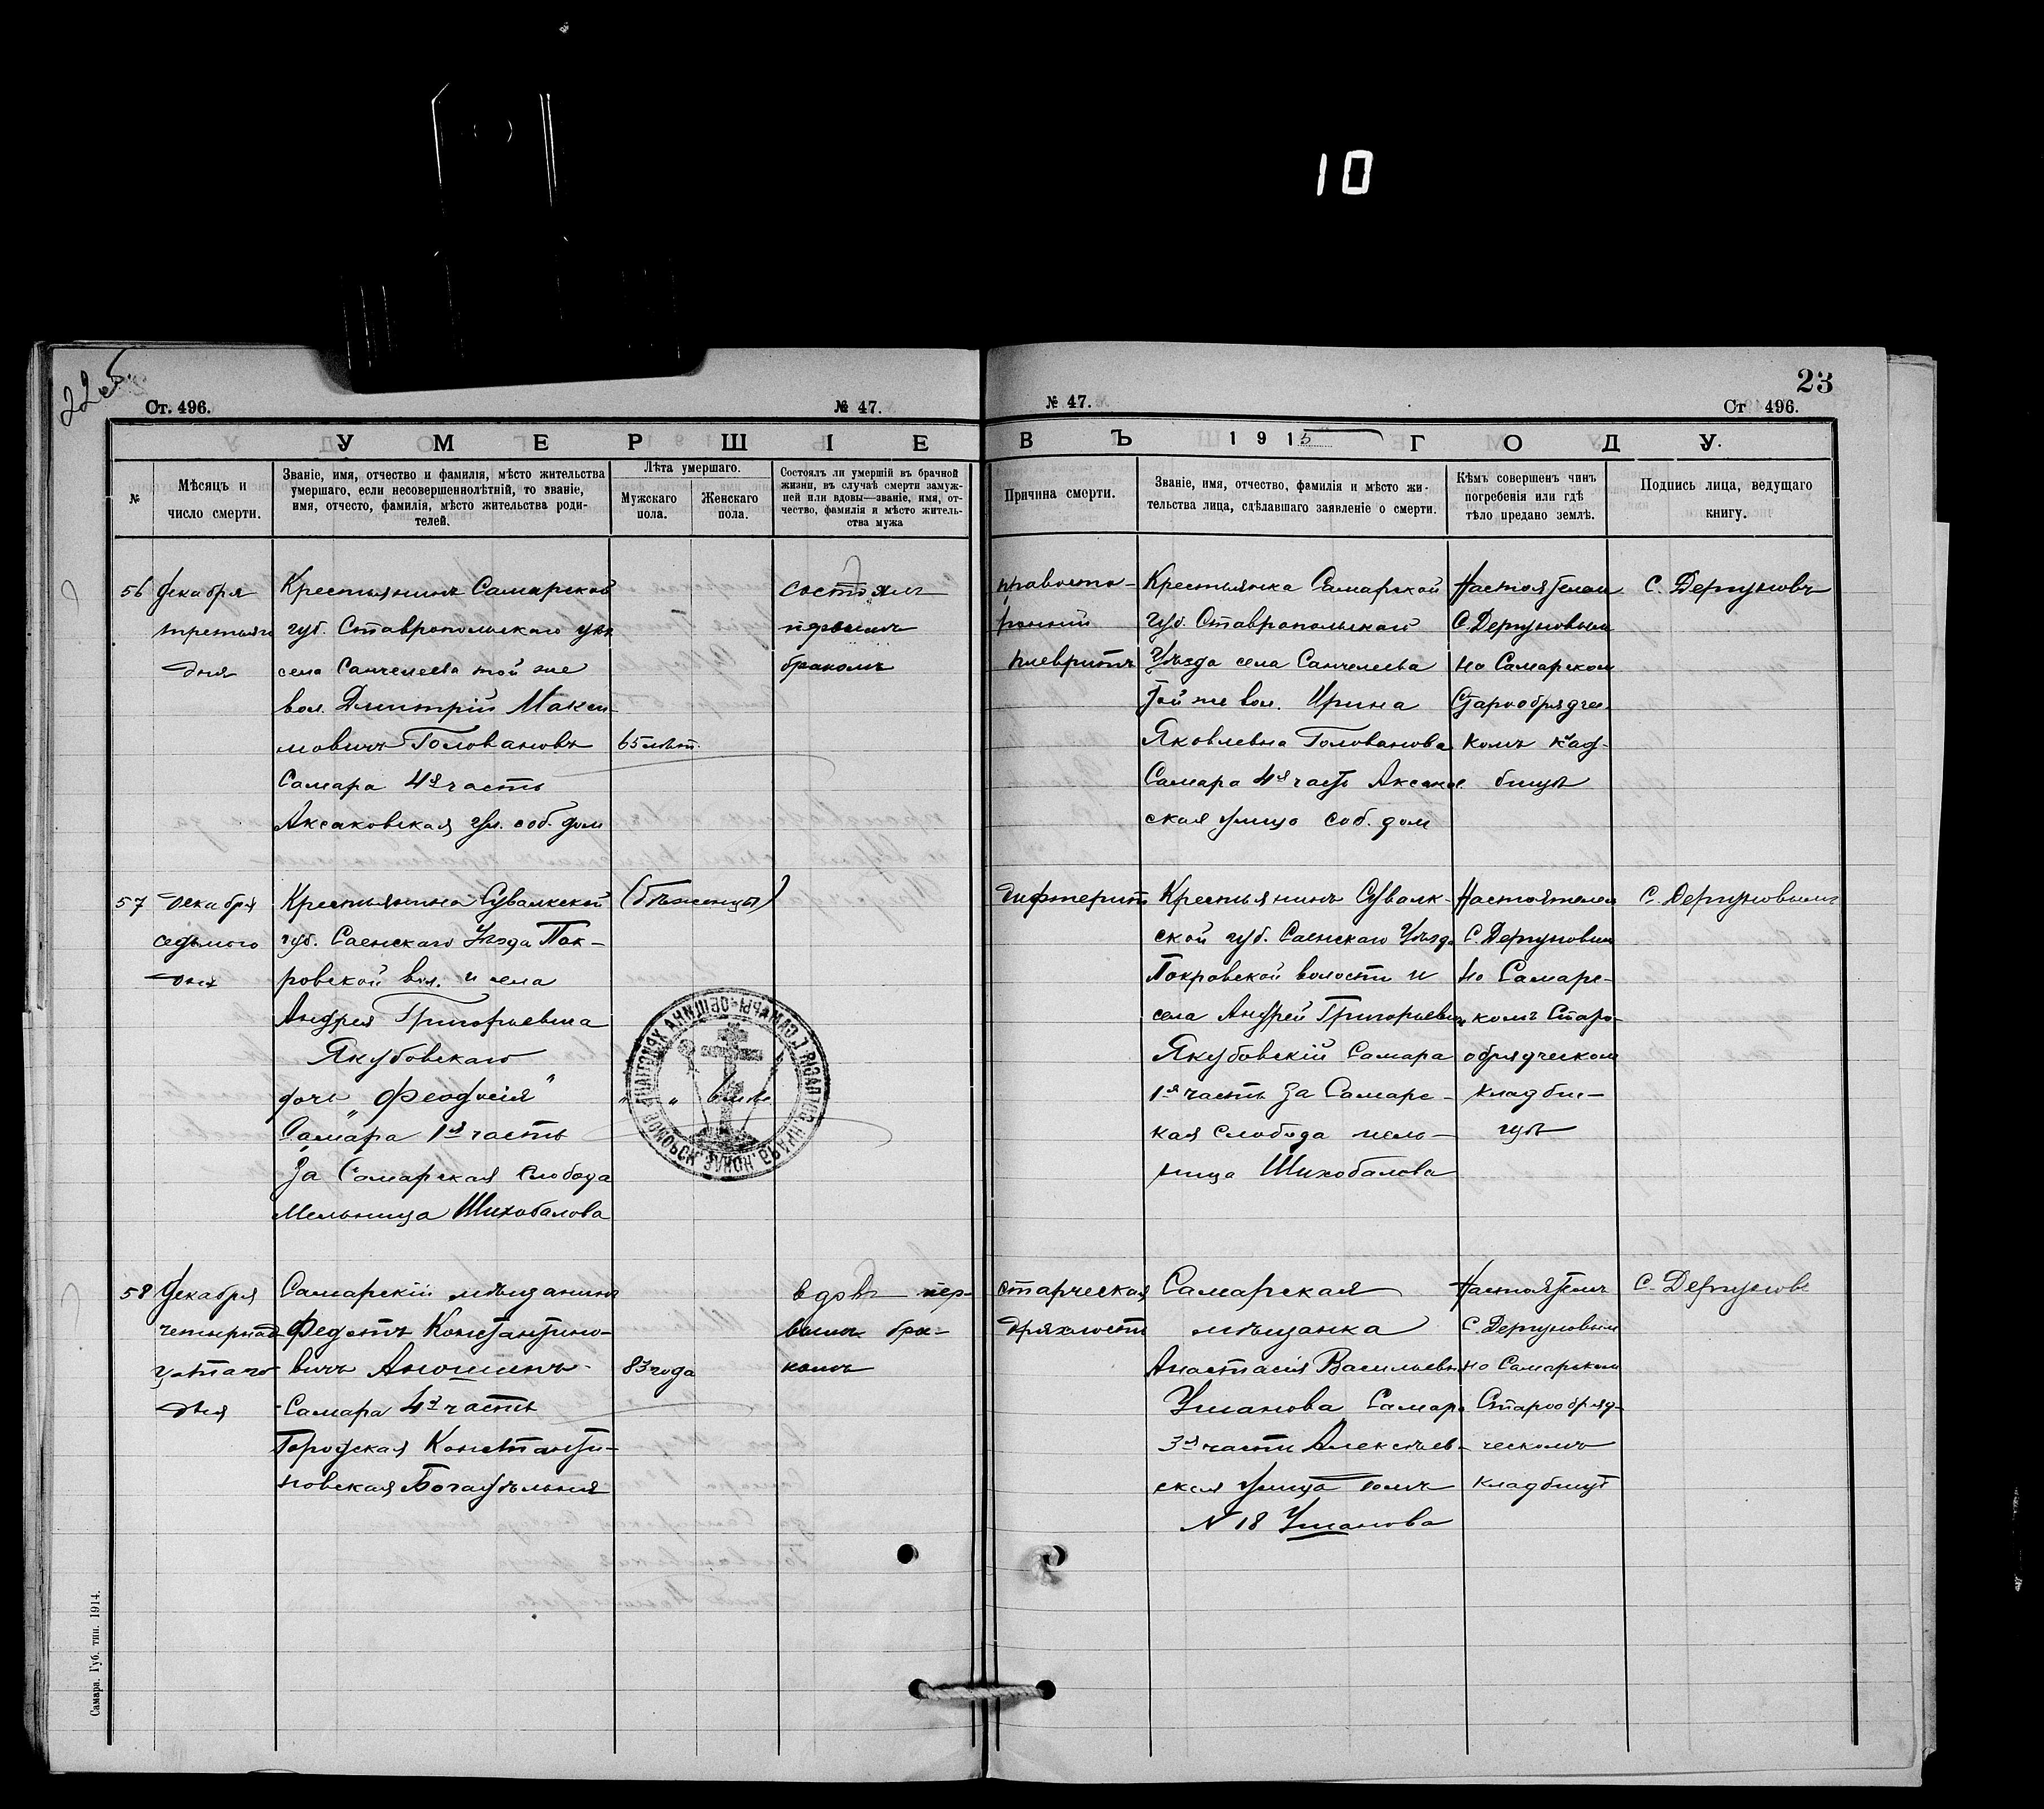 10
22 об.
23
Ст. 496.
№ 47.
№ 47.
Ст 496.
УМЕРШІЕ
ВЪ 1915 ГОДУ.
№
Мѣсяцъ и
число смерти.
Званіе, имя, отчество и фамилія, мѣсто жительства
умершаго, если несовершеннолѣтній, то званіе,
имя, отчесто, фамилія, мѣсто жительства роди-
телей.
Лѣта умершаго.
Мужскаго
пола.
Женскаго
пола.
Состоялъ ли умершій въ брачной
жизни, въ случаѣ смерти замуж-
ней или вдовы—званіе, имя, от-
чество, фамилія и мѣсто житель-
ства мужа
Причина смерти.
Званіе, имя, отчество, фамилія и мѣсто жи-
тельства лица, сдѣлавшаго заявленіе о смерти.
Кѣмъ совершенъ чинъ
погребенія или гдѣ
тѣло предано землѣ.
Подпись лица, ведущаго
книгу.
56
Декабря
третьяго
дня
Крестьянинъ Самарской
губ. Ставропольскаго уѣз
села Санчелеева той же
вол. Дмитрій Макси-
мовичъ Головановъ
Самара 4я часть
Аксаковская ул. соб. дом
65 лѣт.
состоялъ
первымъ
бракомъ
правосто-
ронній
плевритъ
Крестьянка Самарской
губ. Ставропольскаго
Уѣзда села Санчелеева
Той же вол. Ирина
Яковлевна Голованова
Самара 4я часть Аксаков
ская улица соб. дом
Настоятелем
С. Дергуновым
на Самарском
Старообрядчес
комъ клад-
бищѣ
С. Дергуновъ
57
Декабря
седьмого
дня
Крестьянина Сувалкской
губ. Саенскаго Уѣзда Пок-
ровской вол. и села
Андрея Григорьевича
Якубовскаго
дочь „Феодосія"
Самара 1я часть
За Самарская Слобода
Мельница Шихобалова
(бѣженцы)
" "
ПОМОРСК. ЗАКОН. БРАКА ПРИЕМЛЮЩ. Г. САМАРЫ ОБЩИНА ХРИСТІАНЪ
дифтеритъ
Крестьянинъ Сувалк-
ской губ. Саенскаго Уѣзда
Покровской волости и
села Андрей Григорьевич
Якубовскій Самара
1я часть За Самарс-
кая слобода мель-
ница Шихобалова
Настоятелем
С. Дергуновым
на Самарс-
комъ Старо-
обрядческом
кладби-
щѣ
С. Дергуновымъ
58
Декабря
четырнад
цатаго
дня
Самарскій мѣщанинъ
Федотъ Константино-
вичъ Аношинъ
Самара 4я часть
Городская Константи-
новская Богадѣльня
83 года
вдовъ пер-
вымъ бра-
комъ
старческая
дряхлость
Самарская
мѣщанка
Анастасія Васильевна
Уманова Самара
3я часть Алексѣев-
ская улица домъ
N 18 Уманова
Настоятелмъ
С. Дергуновым
на Самарском
Старообряд-
ческомъ
кладбищѣ
С. Дергуновъ
Самара. Губ. тип. 1914.